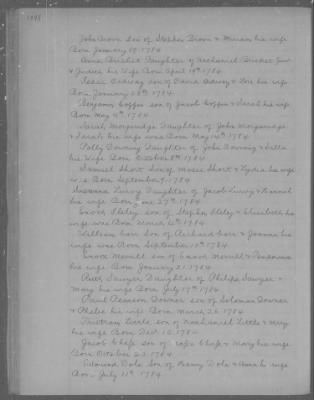 John Dove Son of Stephen Dove & Miriam his wife
Born January 19. 1784
Anna Bricket Daughter of Nathaniel Bricket Jun
& his Wife Born April 19th 1784
Isaac Ordway son of Ordway & his wife
Born January 28th 1784
Benjamin Coffin son of Jacob Coffin & Sarah his wife
Born May 9th 1784
Sarah Morgaridge Daughter of John Morgaridge
& Sarah his wife was Born May 14th 1784
Polly Downing Daughter of John Downing & Letta
his Wife Born October 8th 1784
Samuel Short Son of Moses Short & Lydia his wife
was Born September 9. 1784
Susanna Daughter of Jacob & Hannah
his wife Born June 27th 1784
Enoch Sleley son of Stephen Sleley & Elizabeth his
wife was Born March 6th 1784
William Carr Son of Richard Carr & Joanna his
wife was Born September 15th 1784
Enoch Merrill son of Enoch Merrill &
his wife Born January 21. 1784
Ruth Sawyer Daughter of Philip Sawyer &
Mary his wife Born July 17th 1784
Paul Downer son of Solomon Downer
& his wife Born March 26 1784
Tristram Little son of Nathaniel Little & Mary
his wife Born Dec. 10 1784
Jacob Chase son of Chase & Mary his wife
Born October 23 1784
Edmund Dole Son of Dole & Hannah wife
Born July 11th 1784